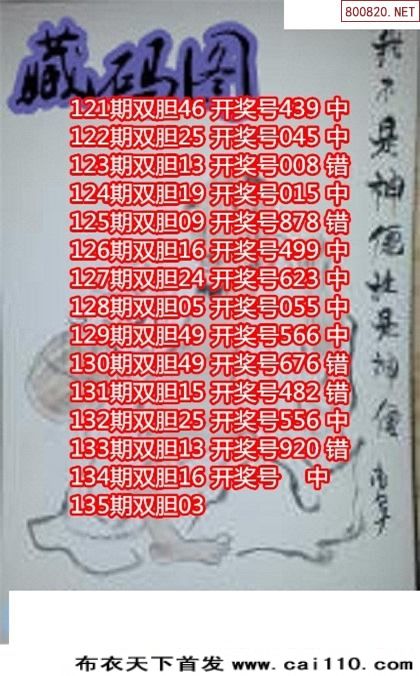 800820.NET
藏码图
121期双胆46 开奖号439 中
122期双胆25 开奖号045 中
123期双胆13 开奖号008 错
124期双胆19 开奖号015 中
125期双胆09 开奖号878 错
126期双胆16 开奖号499 中
127期双胆24 开奖号623 中
128期双胆05 开奖号055 中
129期双胆49 开奖号566 中
130期双胆49 开奖号676 错
131期双胆15 开奖号482 错
132期双胆25 开奖号556 中
133期双胆13 开奖号920 错
134期双胆16 开奖号 中
135期双胆03
我不是神仙
是神仙
布衣天下首发 www.cai110.com